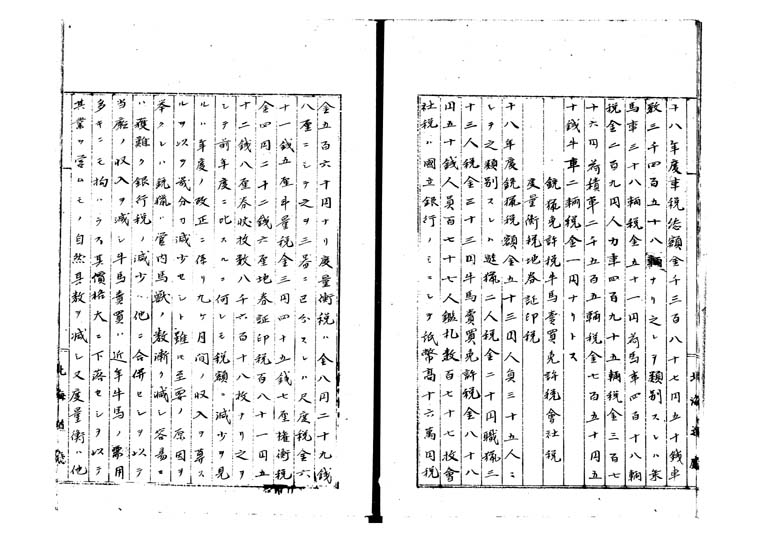 十八年度車税惣額金千三百八十七円五十銭車
数三千四百五十八輌ナリ之レヲ類別スレハ乗
馬車三十八輌税金五十一円荷馬車四百十八輌
税金二百九円人力車四百九十五輌税金三百七
十六円荷積車二千五百五輌税金七百五十円五
十銭牛車二輌税金一円ナリトス
銃猟免許税牛馬売買免許税会社税
度量衡税地券証印税
十八年度銃猟税額金五十三円人員三十五人ニ
シテ之ヲ類別スレハ遊猟二人税金二十円職猟三
十三人税金三十三円牛馬売買免許税金八十八
円五十銭人員百七十七人鑑札数百七十七枚会
社税ハ国立銀行ノミニシテ紙幣高十六万円税
金五百六十円ナリ度量衡税ハ金八円二十九銭
八厘ニシテ之ヲ三器ニ区分スレハ尺度税金六
十一銭五厘斗量税金三円四十五銭七厘権衡税
金四円二十二銭六厘地券証印税百八十一円五
十二銭八厘券状枚数八千六百十八枚ナリ之ヲ
シテ前年度ニ比スルニ何レモ税額ニ減少ヲ見
ルハ年度ノ改正ニ係リ九ヶ月間ノ収入ヲ算ス
ルヲ以テ幾分カ減少セント雖モ至要ノ原因ヲ
挙クレハ銃猟ハ管内鳥獣ノ数漸ク減シ容易ニ
ハ獲難ク銀行税ノ減少ハ他ニ合併セシヲ以テ
当庁ノ収入ヲ減シ牛馬売買ハ近年牛馬ノ需用
多キニモ拘ハラス其価格大ニ下落セシヲ以テ
其業ヲ営ムモノ自然其数ヲ減シ又度量衡ハ他
北海道庁